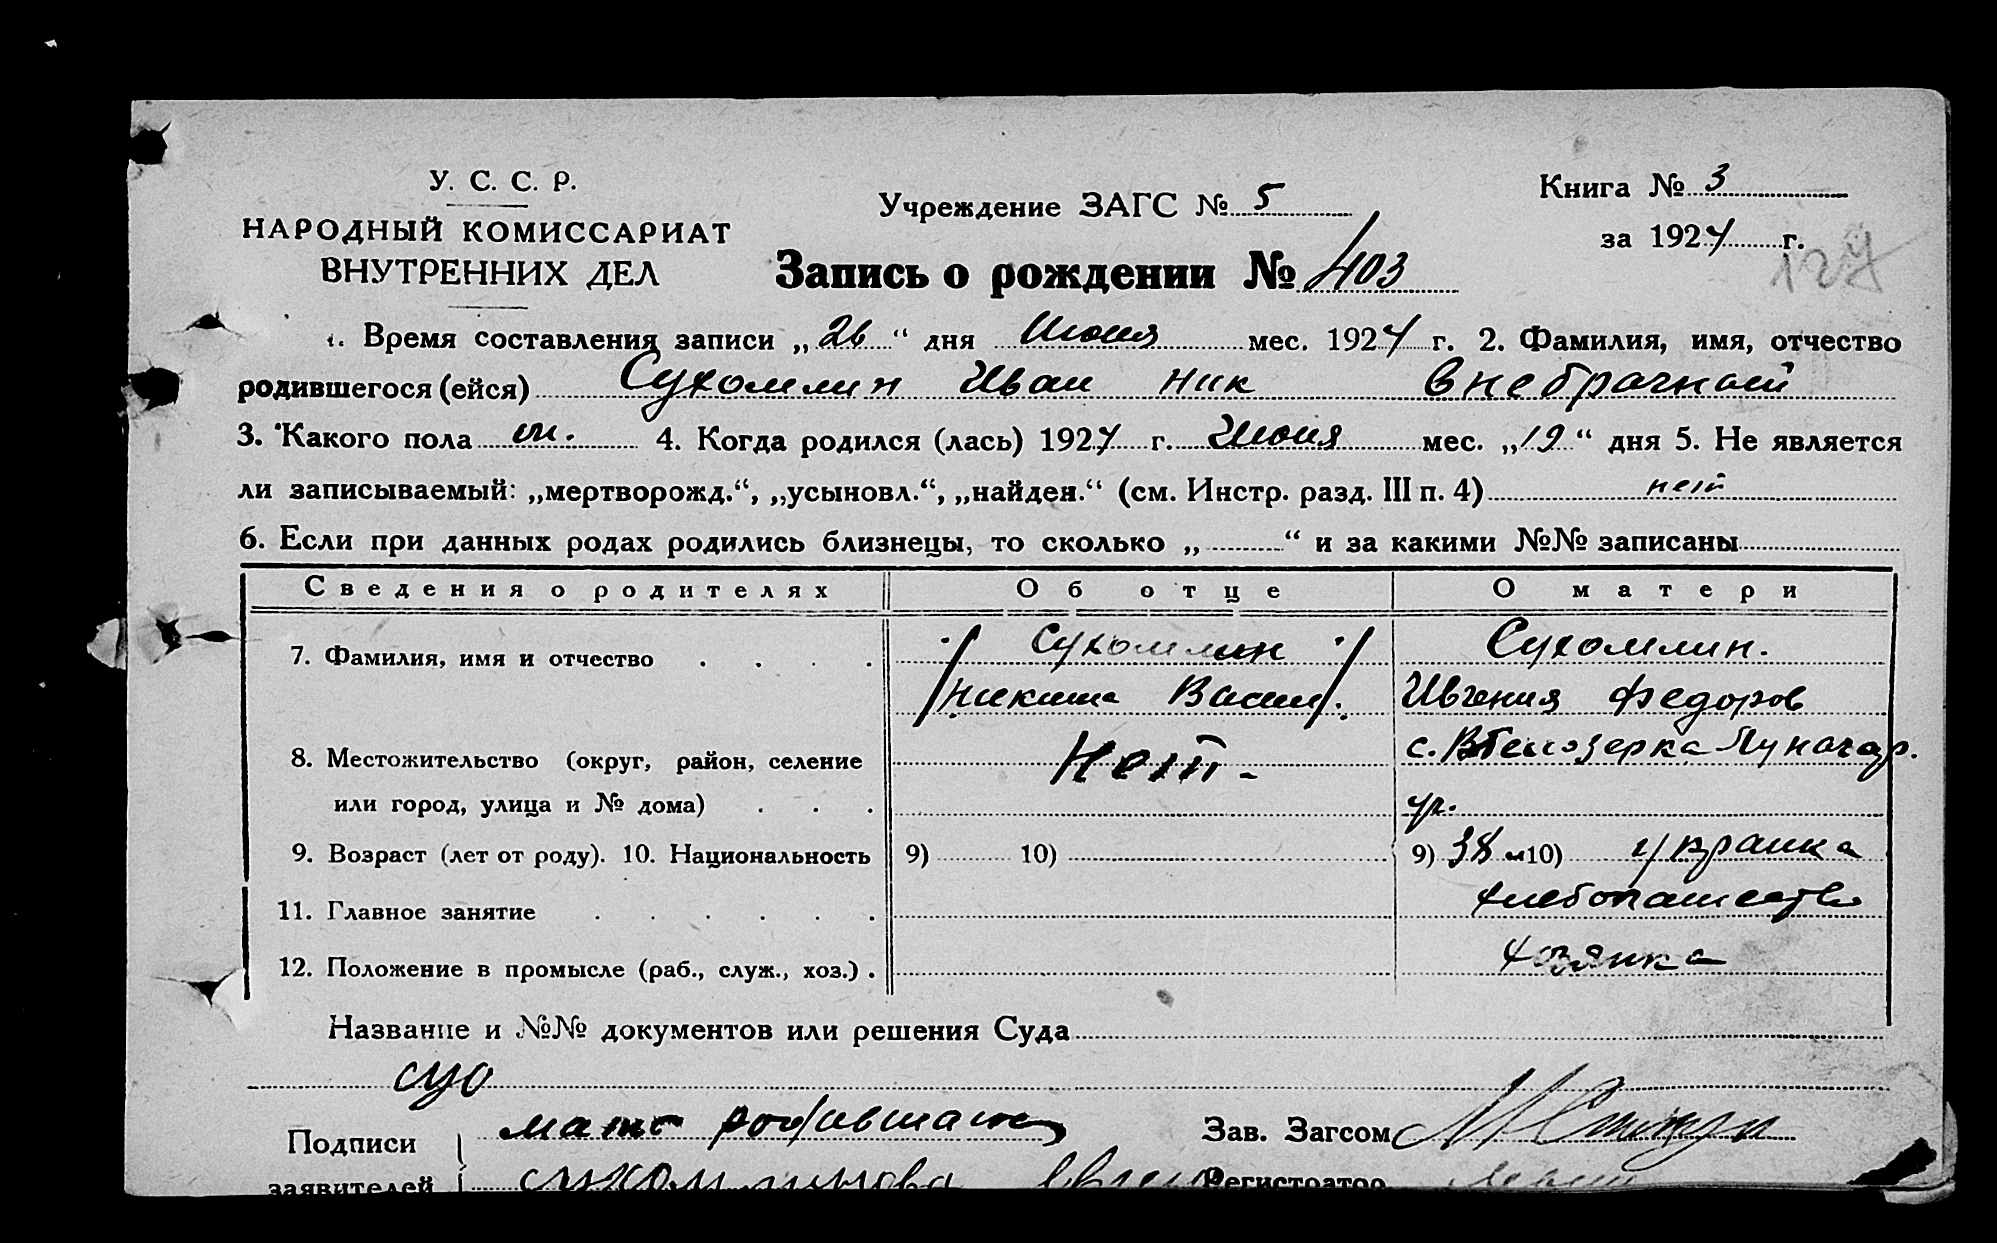 У. С. С. Р.
НАРОДНЫЙ КОМИССАРИАТ
ВНУТРЕННИХ ДЕЛ
Учреждение ЗАГС № 5
Книга № 3
за 1927 г.
127
Запись о рождении № 403
1. Время составления записи „26“ дня Июня мес. 1927 г. 2. Фамилия, имя, отчество
родившегося (ейся) Сухомлин Иван Ник внебрачный
3. Какого пола м. 4. Когда родился (лась) 1927 г. Июня мес. „19“ дня 5. Не является
ли записываемый: „мертворожд.“, „усыновл.“, „найден.“ (см. Инстр. разд. III п. 4) нет
6. Если при данных родах родились близнецы, то сколько „ “ и за какими №№ записаны
Сведения о родителях Об отце О матери
7. Фамилия, имя и отчество Сухомлин Сухомлин.
Никита Васил. Ивгения Федоров
8. Местожительство (округ, район, селение Нет- с. Белозерка Луначар.
или город, улица и № дома) ур.
9. Возраст (лет от роду). 10. Национальность 9) 10) 9) 38 л 10) украинка
11. Главное занятие хлебопашество
12. Положение в промысле (раб., служ., хоз.) хозяйка
Название и №№ документов или решения Суда
Подписи мать Зав. Загсом
заявителей Сухомлинова Регистратор